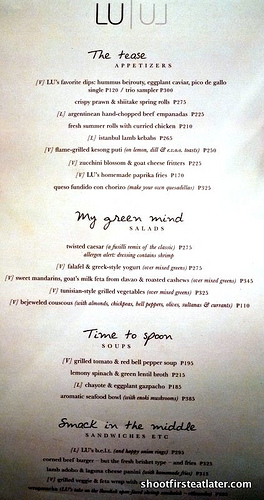 LU | LU
The tease
APPETIZERS
[V] LU's favorite dips: hummus beirouty, eggplant caviar, pico de gallo
single P120 / trio sampler P300
crispy prawn & shiitake spring rolls P275
[L] argentinean hand-chopped beef empanadas P225
fresh summer rolls with curried chicken P210
[L] istanbul lamb kebabs P265
[V] flame-grilled kesong puti (on lemon, dill & e.v.o.o. toasts) P250
[V] zucchini blossom & goat cheese fritters P225
[V] LU's homemade paprika fries P170
queso fundido con chorizo (make your own quesadillas) P325
My green mind
SALADS
twisted caesar (a fusilli remix of the classic) P275
allergen alert: dressing contains shrimp
[V] falafel & greek-style yogurt (over mixed greens) P275
[V] sweet mandarins, goat's milk feta from davao & roasted cashews (over mixed greens) P345
[V] tunisian-style grilled vegetables (over mixed greens) P325
[V] bejeweled couscous (with almonds, chickpeas, bell peppers, olives, sultanas & currants) P110
Time to spoon
SOUPS
[V] grilled tomato & red bell pepper soup P195
lemony spinach & green lentil broth P215
[L] chayote & eggplant gazpacho P185
aromatic seafood bowl (with enoki mushrooms) P385
Smack in the middle
SANDWICHES ETC
[L] LU's b.r.l.t. (and happy onion rings) P395
corned beef burger – but the fresh brisket type – and fries P325
lamb adobo & laguna cheese panini (with homemade fries) P345
[V] grilled veggie & feta wrap
shootfirsteatlater.com